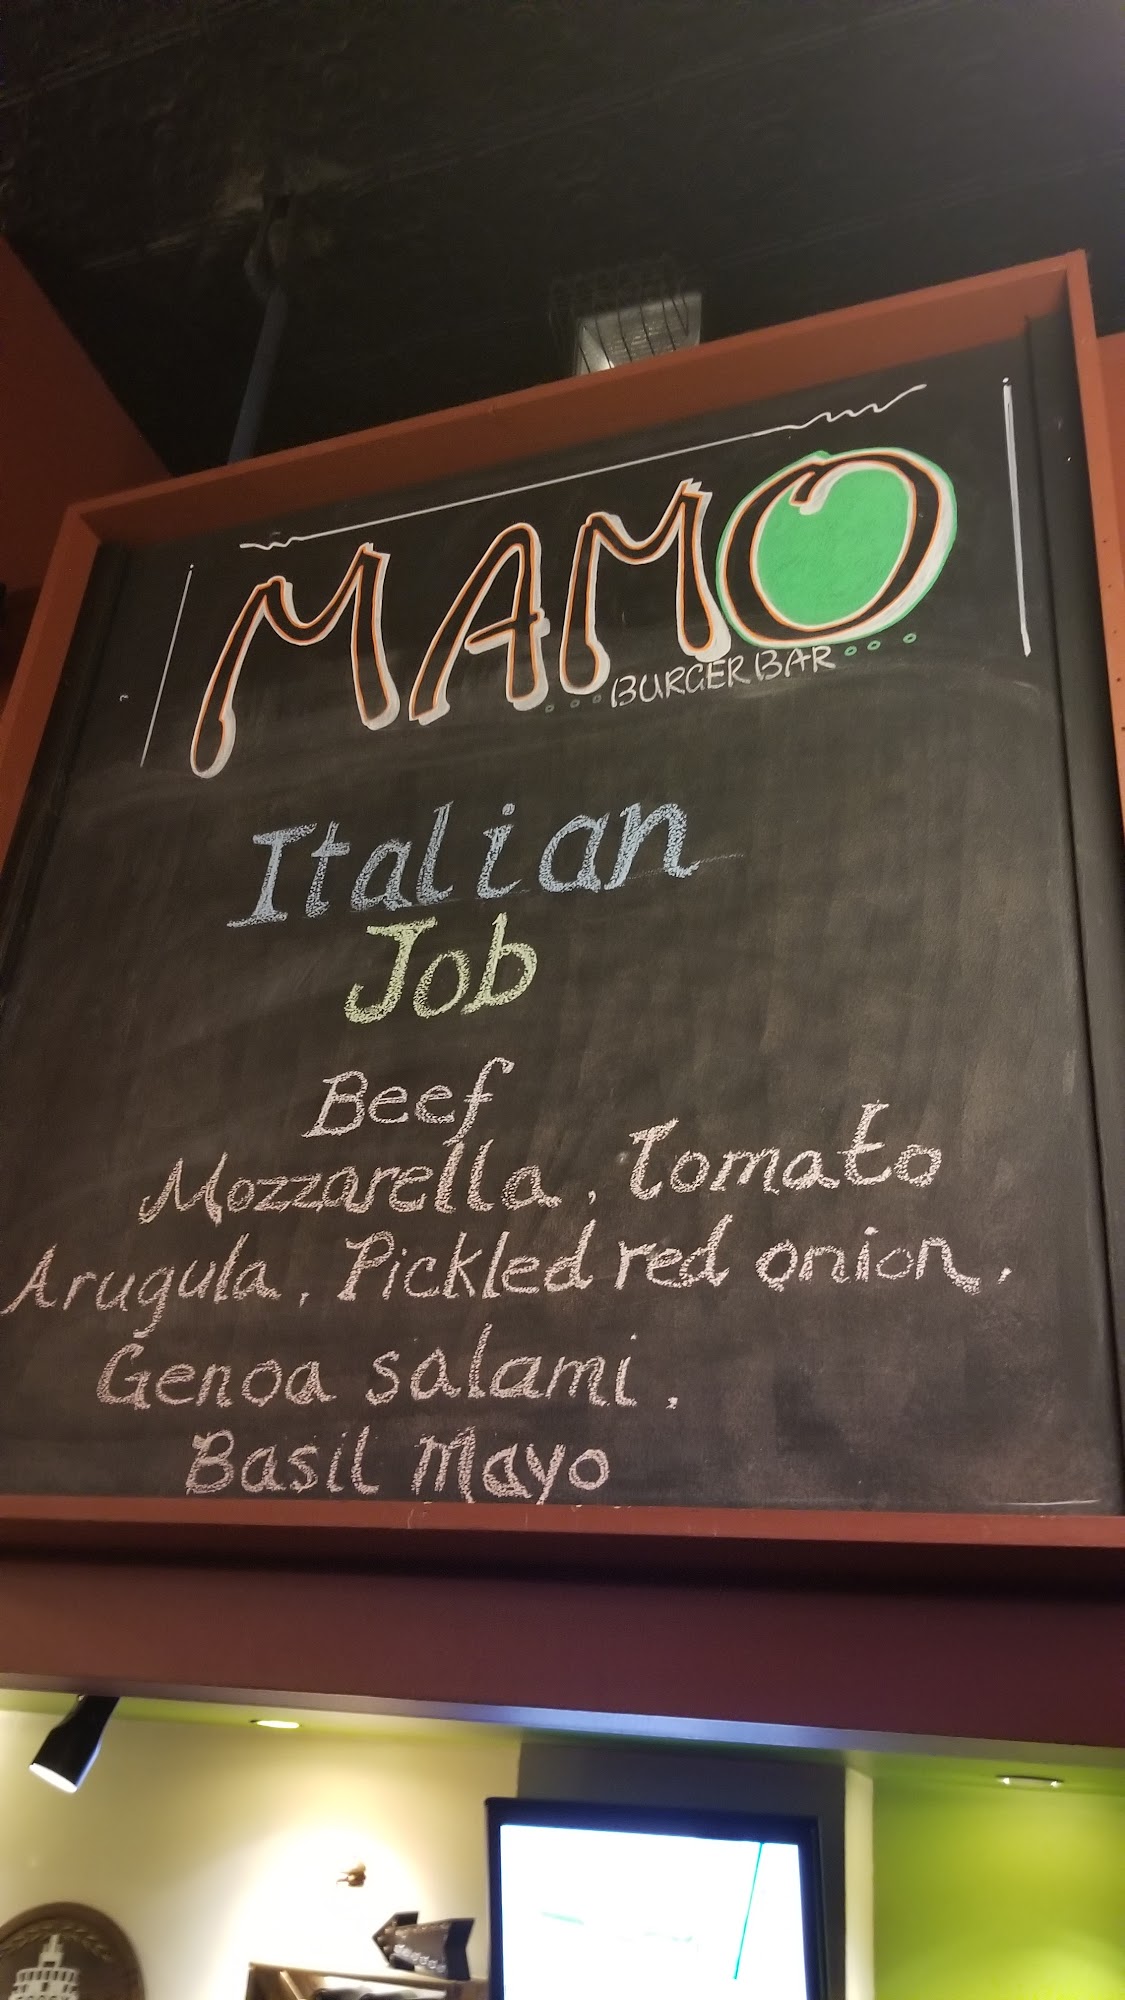 MAMO
BURGER BAR
Italian
Job
Beef
Mozzarella, Tomato
Arugula, Pickled red onion,
Genoa salami,
Basil Mayo